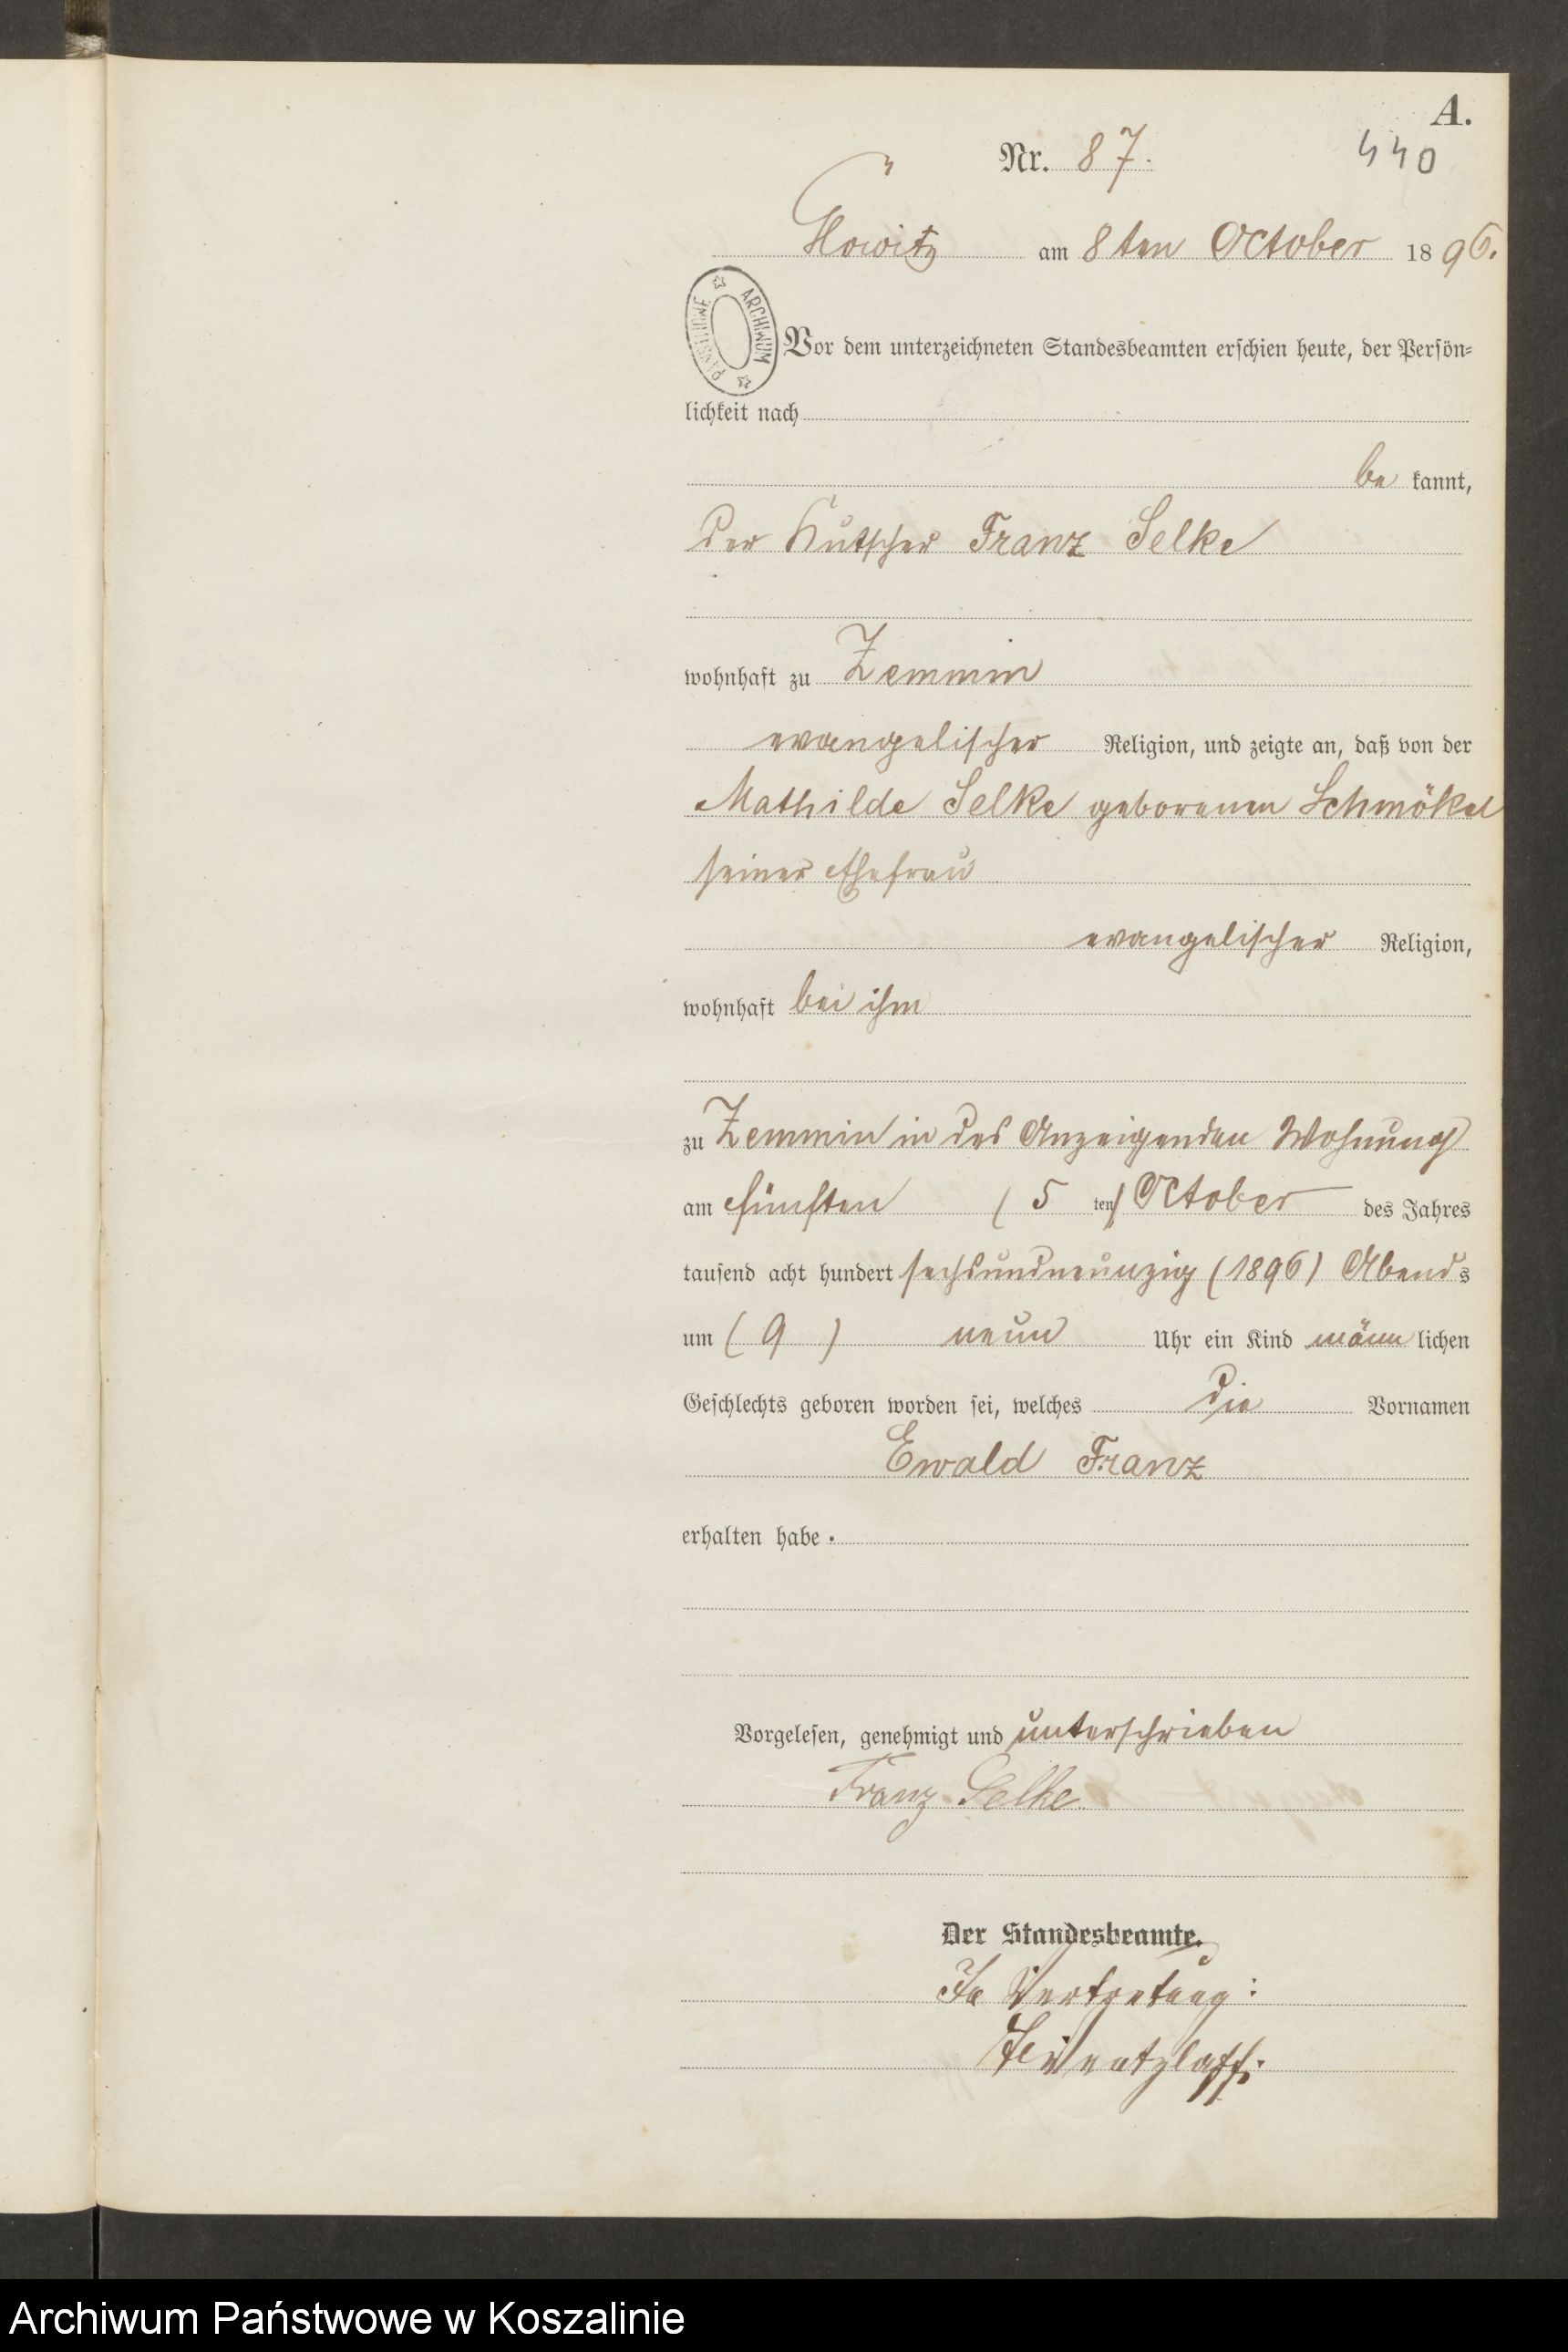 A.
Nr. 87.
440
am 8ten October 1896.
ARCHIWUM PAŃSTWOWE
Vor dem unterzeichneten Standesbeamten erschien heute, der Persön=
lichkeit nach
be kannt,
der Kutscher Franz Selke
wohnhaft zu Zemmin
evangelischer Religion, und zeigte an, daß von der
Mathilde Selke geborenen Schmökel
seiner Ehefrau
evangelischer Religion,
wohnhaft bei ihm
zu Zemmin in des Anzeigenden Wohnung
am fünften (5 ten) October des Jahres
tausend acht hundert sechsundneunzig (1896) Abends
um (9) neun Uhr ein Kind männlichen
Geschlechts geboren worden sei, welches die Vornamen
Ewald Franz
erhalten habe.
Vorgelesen, genehmigt und unterschrieben
Franz Selke
Der Standesbeamte.
In Vertretung:
Archiwum Państwowe w Koszalinie